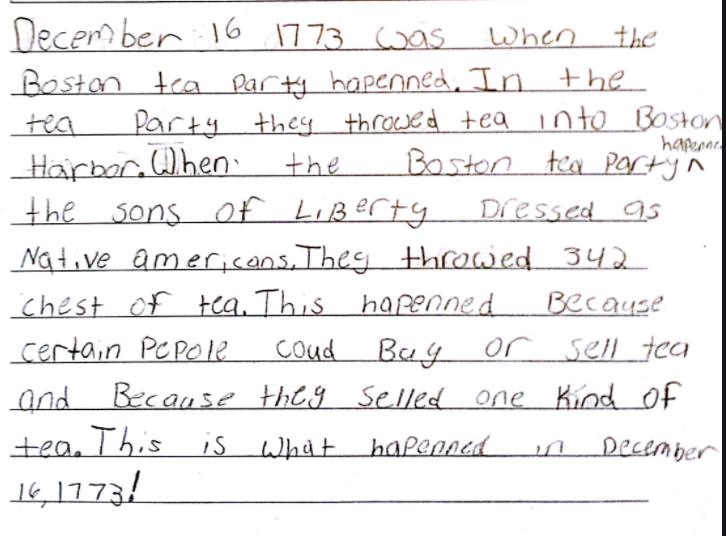 December 16 1773 was when the
Boston tea party hapenned. In the
tea Party they throwed tea into Boston
hapenned
Harbor. When the Boston tea party ^
the sons of LiBerty Dressed as
Native americans. They throwed 342
chest of tea. This hapenned Because
certain Pepole coud Bay or sell tea
and Because they selled one kind of
tea. This is what hapenned in December
16, 1773!